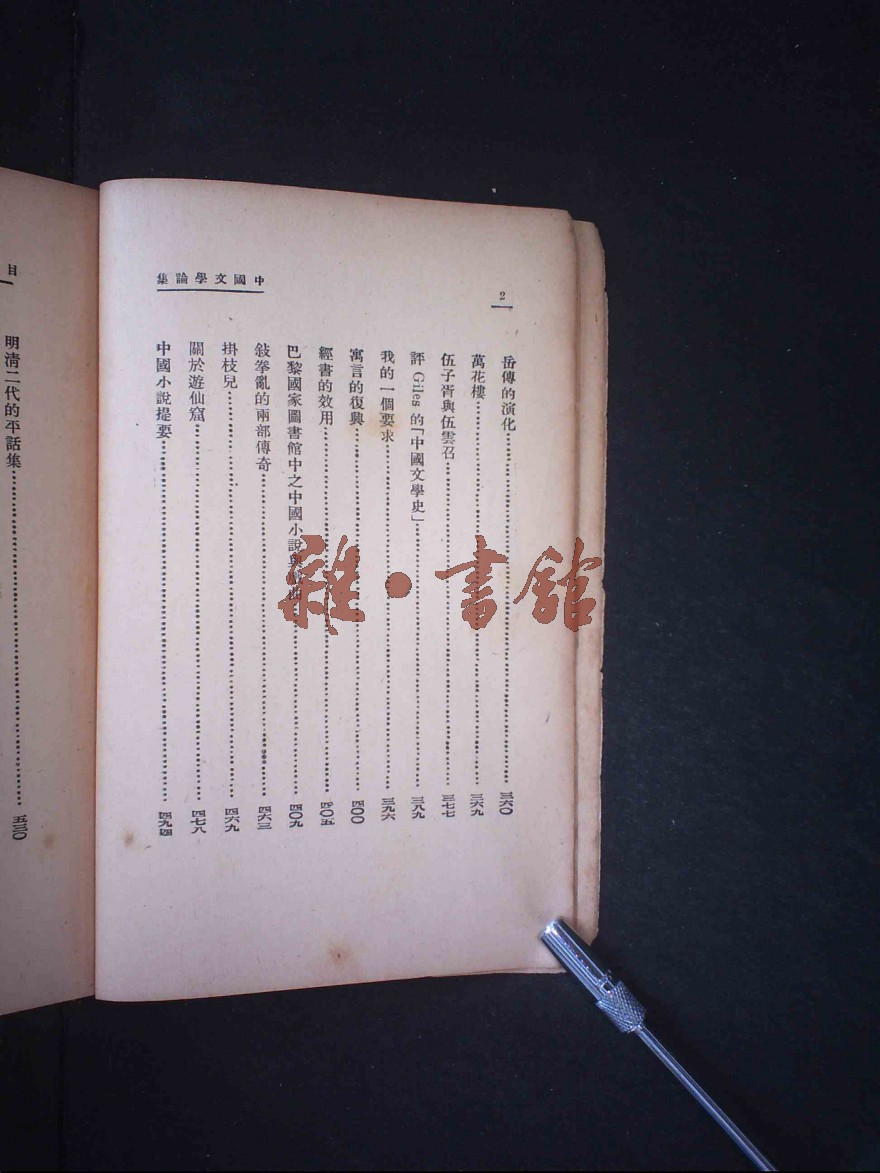 中國文學論集
2
岳傳的演化 三六〇
萬花樓 三六九
伍子胥與伍雲召 三七七
評 Giles 的「中國文學史」 三八九
我的一個要求 三九六
寓言的復興 四〇〇
經書的效用 四〇五
巴黎國家圖書館中之中國小說與 四〇九
敍拳亂的兩部傳奇 四六三
掛枝兒 四六九
關於遊仙窟 四七八
中國小說提要 四九四
目
明清二代的平話集 五三〇
雜·書館